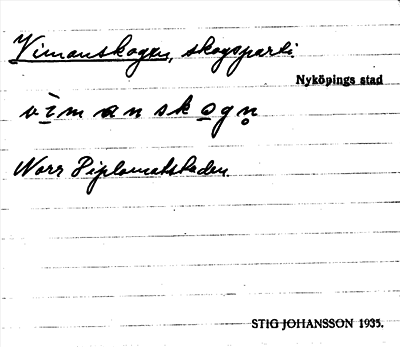 Vimanskogen, skogsparti.
Nyköpings stad
vìmanskogn̥
Norr Diplomatstaden
STIG JOHANSSON 1935.